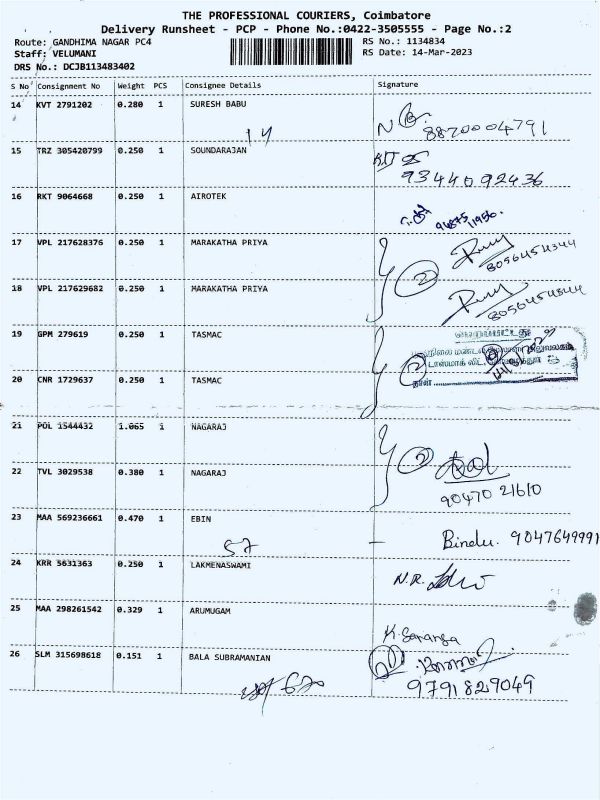 THE PROFESSIONAL COURIERS, Coimbatore
Delivery Runsheet - PCP - Phone No.:0422-3505555 - Page No.:2
Route: GANDHIMA NAGAR PC4 RS No.: 1134834
Staff: VELUMANI RS Date: 14-Mar-2023
DRS No.: DCJB113483402
S No Consignment No Weight PCS Consignee Details Signature
14 KVT 2791202 0.280 1 SURESH BABU
14 8870004791
15 TRZ 305420799 0.250 1 SOUNDARAJAN
9344092436
16 RKT 9064668 0.250 1 AIROTEK
94875 11956.
17 VPL 217628376 0.250 1 MARAKATHA PRIYA
2 8056454344
18 VPL 217629682 0.250 1 MARAKATHA PRIYA
8056454344
19 GPM 279619 0.250 1 TASMAC
2
20 CNR 1729637 0.250 1 TASMAC
21 POL 1544432 1.065 1 NAGARAJ
2
22 TVL 3029538 0.380 1 NAGARAJ
90470 21610
23 MAA 569236661 0.470 1 EBIN
57 - Bindu. 9047649991
24 KRR 5631363 0.250 1 LAKMENASWAMI
N.R.
25 MAA 298261542 0.329 1 ARUMUGAM
K. Saranya
26 SLM 315698618 0.151 1 BALA SUBRAMANIAN
9791829049